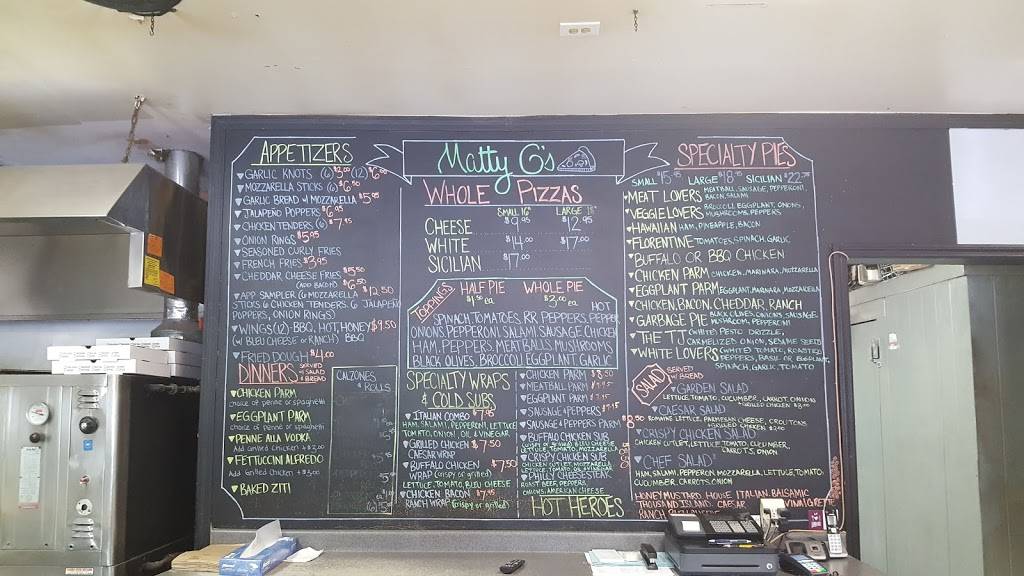 APPETIZERS
▼GARLIC KNOTS (6) $3.00 (12)
▼MOZZARELLA STICKS (6) $6.50
▼GARLIC BREAD W/ MOZZARELLA $5.95
▼JALAPEÑO POPPERS $6.95
▼CHICKEN TENDERS (6) $7.95
▼ONION RINGS $5.95
▼SEASONED CURLY FRIES
▼FRENCH FRIES $3.95
▼CHEDDAR CHEESE FRIES $5.50
(ADD BACON) $6.50
▼APP SAMPLER (6 MOZZARELLA $12.50
STICKS 6 CHICKEN TENDERS, 6 JALAPEÑO
POPPERS, ONION RINGS)
▼WINGS (12) - BBQ, HOT, HONEY $9.50
(W/ BLEU CHEESE OR RANCH) BBQ
▼FRIED DOUGH $4.00
DINNERS SERVED W/ SALAD & BREAD
▼CHICKEN PARM
choice of penne or spaghetti
▼EGGPLANT PARM
choice of penne or spaghetti
▼PENNE ALLA VODKA
Add Grilled Chicken + $2.00
▼FETTUCCINI ALFREDO
Add Grilled Chicken + $3.00
▼BAKED ZITI
CALZONES
& ROLLS
Matty G's
WHOLE PIZZAS
SMALL 16" LARGE 18"
CHEESE $9.95 $12.95
WHITE $14.00 $17.00
SICILIAN $17.00
TOPPINGS
HALF PIE WHOLE PIE
$1.50 ea $2.00 ea
HOT
SPINACH, TOMATOES, RR. PEPPERS, PEPPERS,
ONIONS, PEPPERONI, SALAMI, SAUSAGE, CHICKEN
HAM, PEPPERS, MEATBALLS, MUSHROOMS,
BLACK OLIVES, BROCCOLI, EGGPLANT, GARLIC
SPECIALTY WRAPS
& COLD SUBS
▼ITALIAN COMBO $7.95
HAM, SALAMI, PEPPERONI, LETTUCE
TOMATO, ONION, OIL & VINEGAR
▼GRILLED CHICKEN $7.50
CAESAR WRAP
▼BUFFALO CHICKEN $7.50
WRAP (crispy or grilled)
LETTUCE, TOMATO, BLEU CHEESE
▼CHICKEN BACON $7.95
RANCH WRAP (crispy or grilled)
▼CHICKEN PARM $8.50
▼MEATBALL PARM
▼SAUSAGE & PEPPERS
▼SAUSAGE & PEPPERS PARM
▼BUFFALO CHICKEN SUB
▼CRISPY CHICKEN SUB
CHICKEN CUTLET, MOZZARELLA
▼PHILLY CHEESESTEAK
ROAST BEEF, PEPPERS,
ONIONS, AMERICAN CHEESE
HOT HEROES
SPECIALTY PIES
SMALL $15.95 LARGE $18.95 SICILIAN $22.50
▼MEAT LOVERS MEATBALL, SAUSAGE, PEPPERONI,
BACON, SALAMI
▼VEGGIE LOVERS BROCCOLI, EGGPLANT, ONIONS,
MUSHROOMS, PEPPERS
▼HAWAIIAN HAM, PINEAPPLE, BACON
▼FLORENTINE TOMATOES, SPINACH, GARLIC
▼BUFFALO OR BBQ CHICKEN
▼CHICKEN PARM CHICKEN, MARINARA, MOZZARELLA
▼EGGPLANT PARM EGGPLANT, MARINARA, MOZZARELLA
▼CHICKEN, BACON, CHEDDAR, RANCH
▼GARBAGE PIE BLACK OLIVES, ONIONS, SAUSAGE,
MUSHROOM, PEPPERONI
▼THE T.J. (WHITE) PESTO DRIZZLE,
CARMELIZED ONION, SESAME SEEDS
▼WHITE LOVERS (WHITE) TOMATO, ROASTED
PEPPERS, BASIL OR EGGPLANT,
SPINACH, GARLIC, TOMATO
SALADS
SERVED
W/ BREAD
▼GARDEN SALAD
LETTUCE, TOMATO, CUCUMBER, CARROT, ONIONS
+GRILLED CHICKEN $2.00
▼CAESAR SALAD
ROMAINE LETTUCE, PARMESAN CHEESE, CROUTONS
+GRILLED CHICKEN $2.00
▼CRISPY CHICKEN SALAD
CHICKEN CUTLET, LETTUCE, TOMATO, CUCUMBER,
CARROTS, ONION
▼CHEF SALAD
HAM, SALAMI, PEPPERONI, MOZZARELLA, LETTUCE, TOMATO,
CUCUMBER, CARROTS, ONION
HONEY MUSTARD, HOUSE ITALIAN, BALSAMIC
THOUSAND ISLAND, CAESAR, VINAIGRETTE